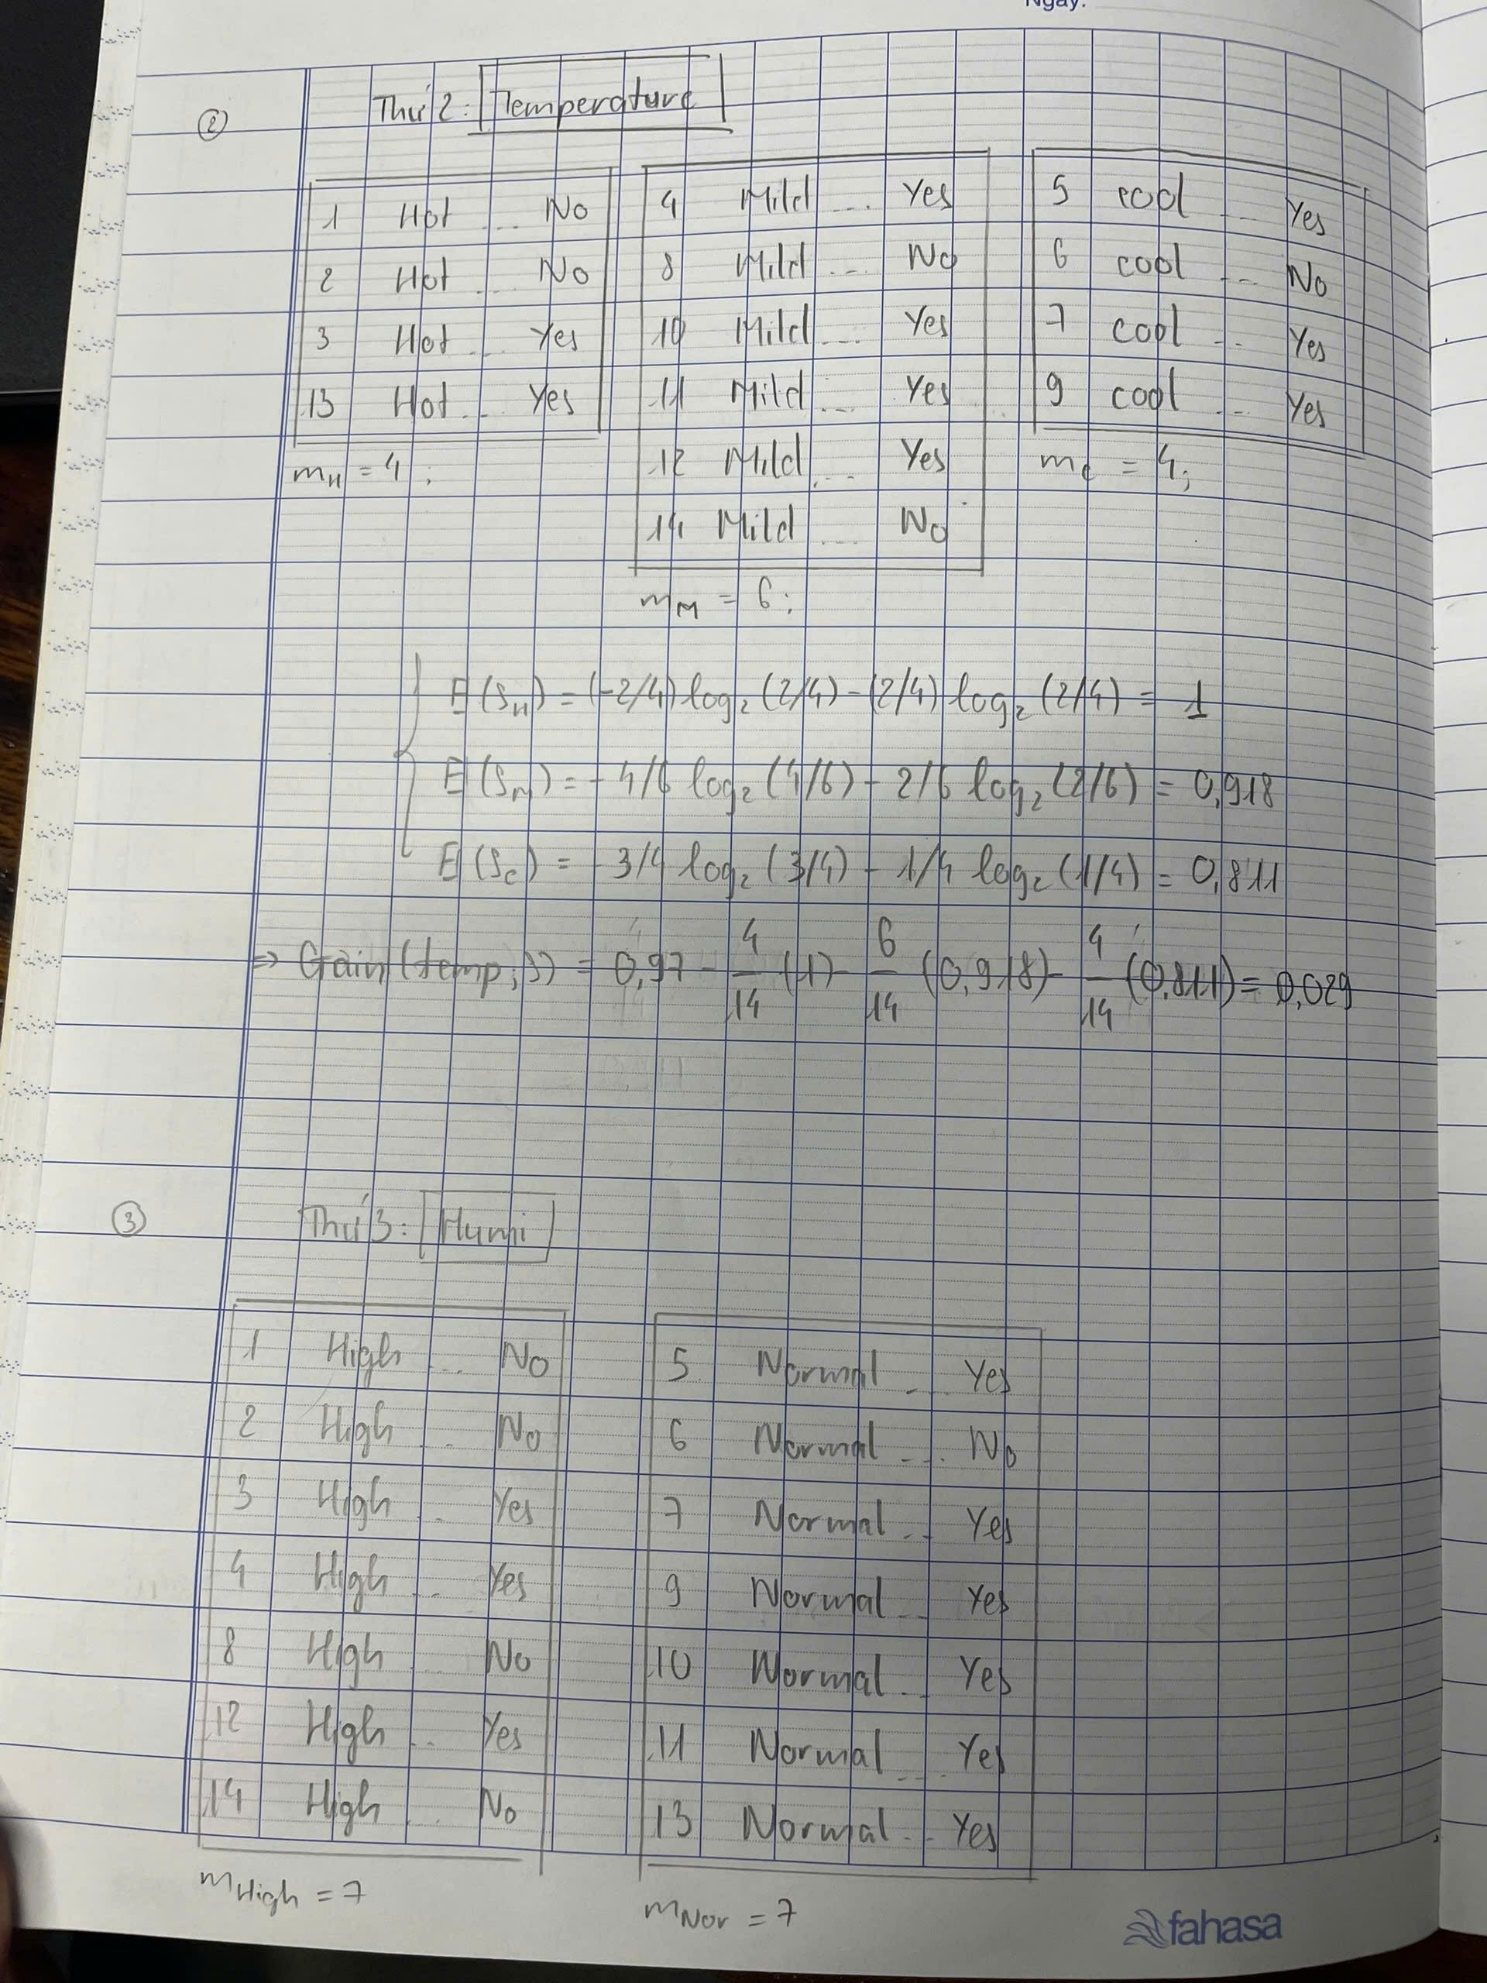 Ngày:
② Thứ 2: Temperature
1 Hot ... No
2 Hot ... No
3 Hot ... Yes
13 Hot ... Yes
m_H = 4;
4 Mild ... Yes
8 Mild ... No
10 Mild ... Yes
11 Mild ... Yes
12 Mild ... Yes
14 Mild ... No
m_M = 6;
5 cool ... Yes
6 cool ... No
7 cool ... Yes
9 cool ... Yes
m_c = 4;
E(S_H) = (-2/4) log₂ (2/4) - (2/4) log₂ (2/4) = 1
E(S_M) = - 4/6 log₂ (4/6) - 2/6 log₂ (2/6) = 0,918
E(S_c) = - 3/4 log₂ (3/4) - 1/4 log₂ (1/4) = 0,811
⇒ Gain(temp, S) = 0,97 - 4/14 (1) - 6/14 (0,918) - 4/14 (0,811) = 0,029
③ Thứ 3: Humi
1 High ... No
2 High ... No
3 High ... Yes
4 High ... Yes
8 High ... No
12 High ... Yes
14 High ... No
m_High = 7
5 Normal ... Yes
6 Normal ... No
7 Normal ... Yes
9 Normal ... Yes
10 Normal ... Yes
11 Normal ... Yes
13 Normal ... Yes
m_Nor = 7
fahasa